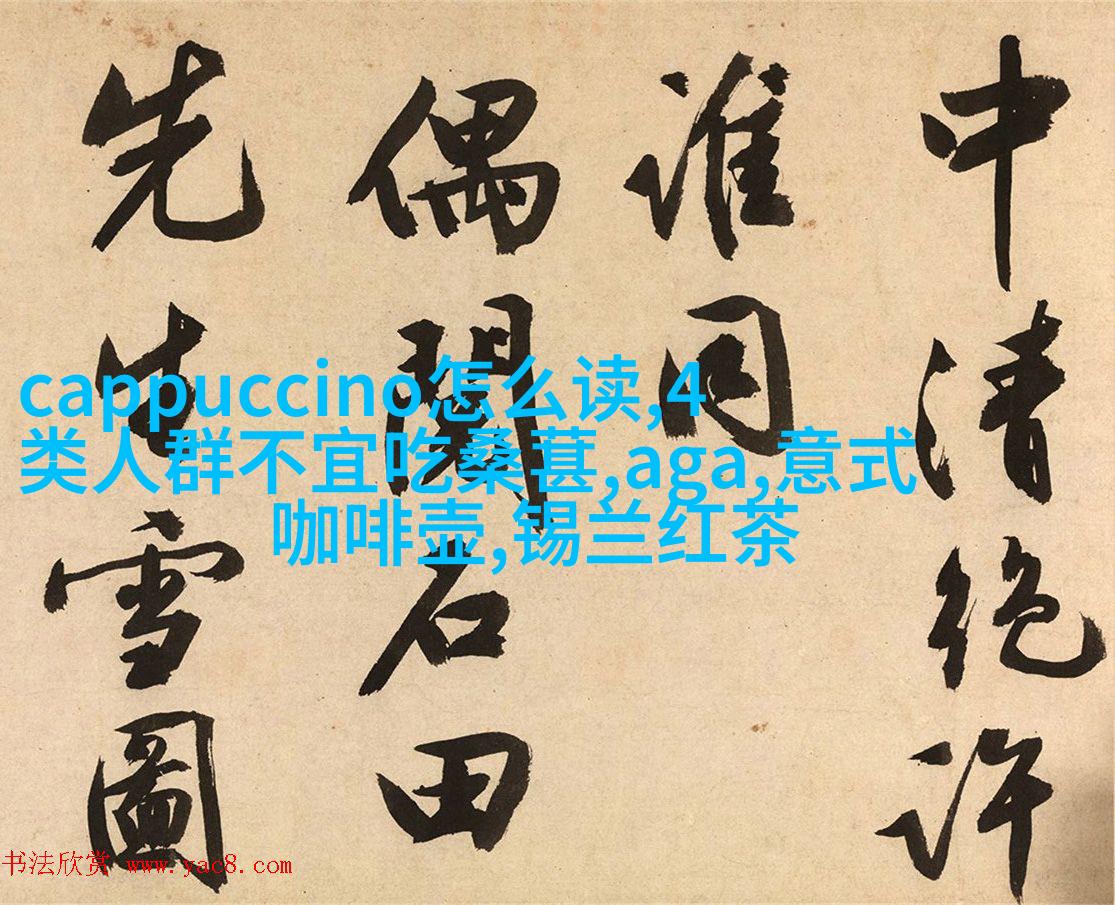 中清絶许
谁同
偶閲石田
先生雪圖
cappuccino怎么读,4
类人群不宜吃桑葚,aga,意式
咖啡壶,锡兰红茶
书法欣赏 www.yac8.com